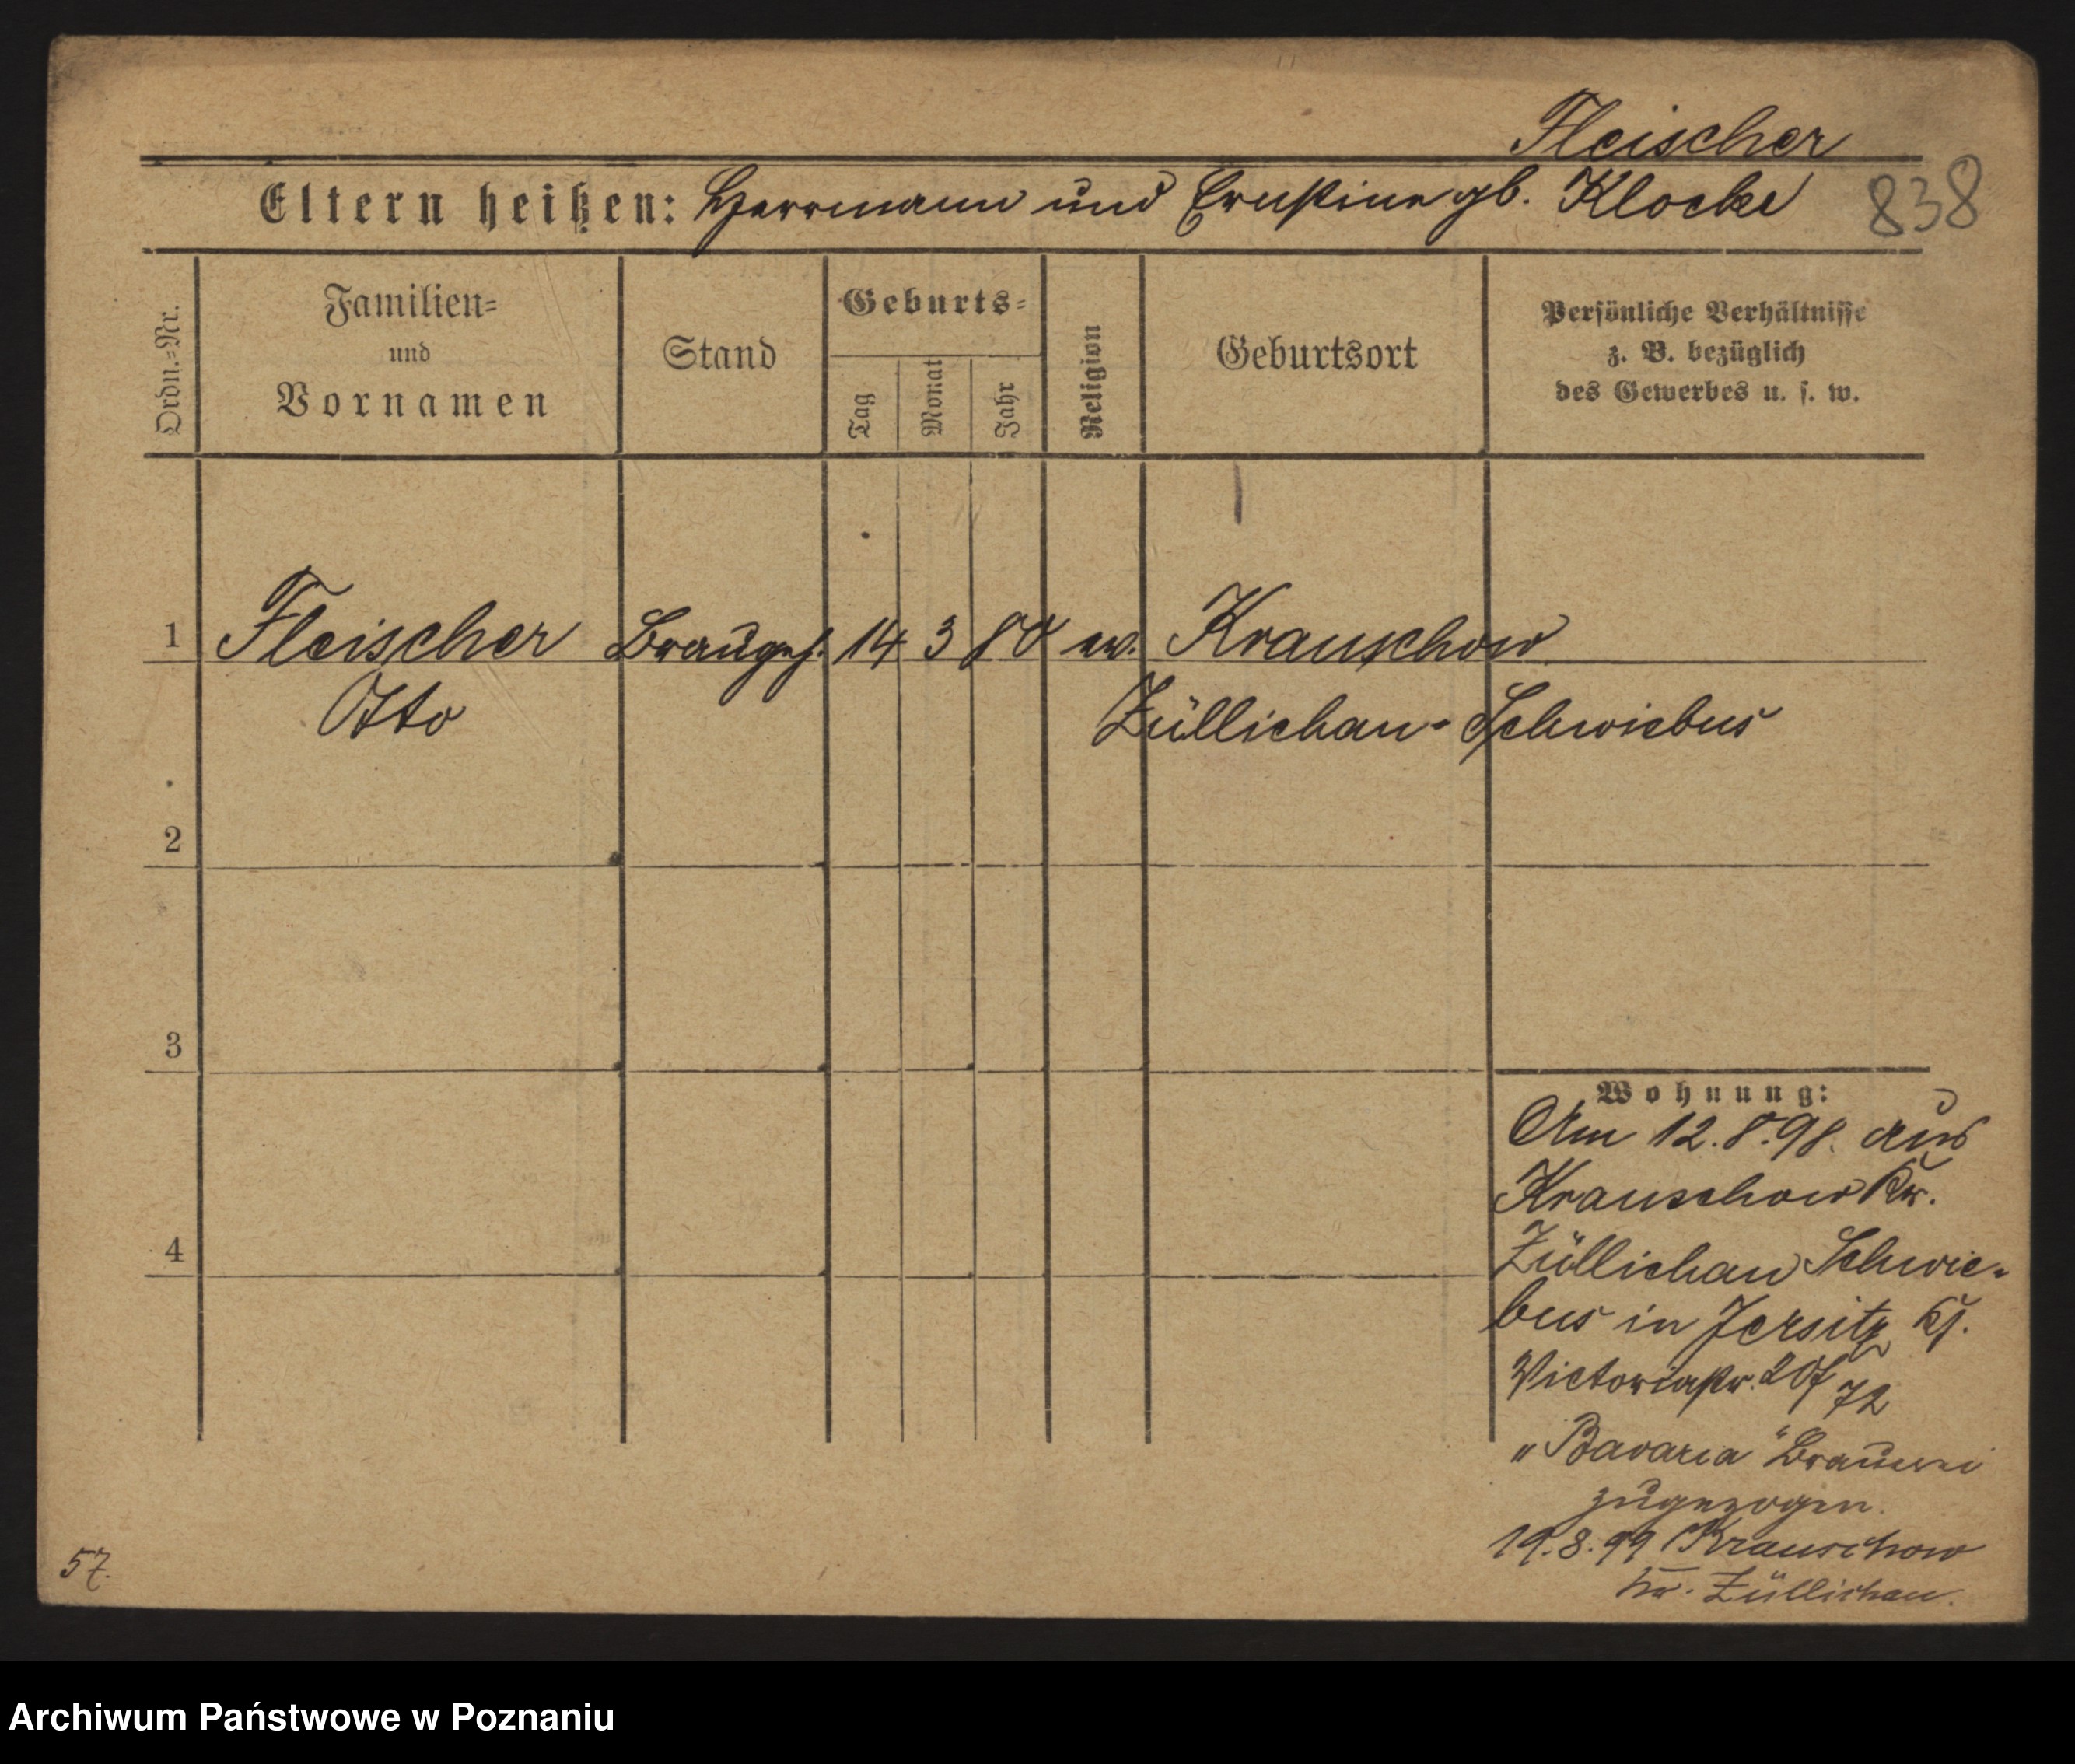 Fleischer
Eltern heißen: Herrmann und Ernstine gb. Klocke 838
Ordn.=Nr.
Familien=
und
Vornamen
Stand
Geburts=
Tag
Monat
Jahr
Religion
Geburtsort
Persönliche Verhältnisse
z. B. bezüglich
des Gewerbes u. s. w.
1 Fleischer Braugeh. 14 3 80 ev. Krauschow
Otto Züllichau-Schwiebus
2
3
Wohnung:
Am 12.8.98. aus
Krauschow Kr.
4 Züllichau Schwie-
bus in Jersitz
Victoriastr. 20/72
„Bavaria“ Brauerei
zugezogen.
19.8.99 Krauschow
Kr. Züllichau.
57.
Archiwum Państwowe w Poznaniu